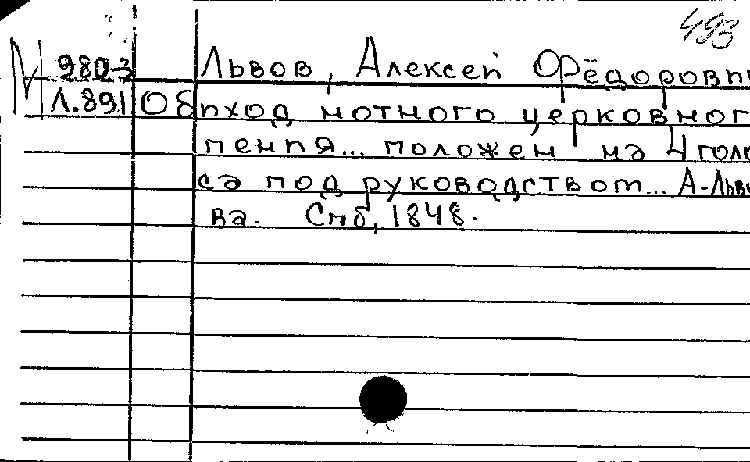 493
М 9803 Львов, Алексей Фёдорови
Л.891 Обиход нотного церковног
пения... положен на 4 голо
са под руководством... А. Льво
ва. Спб, 1848.